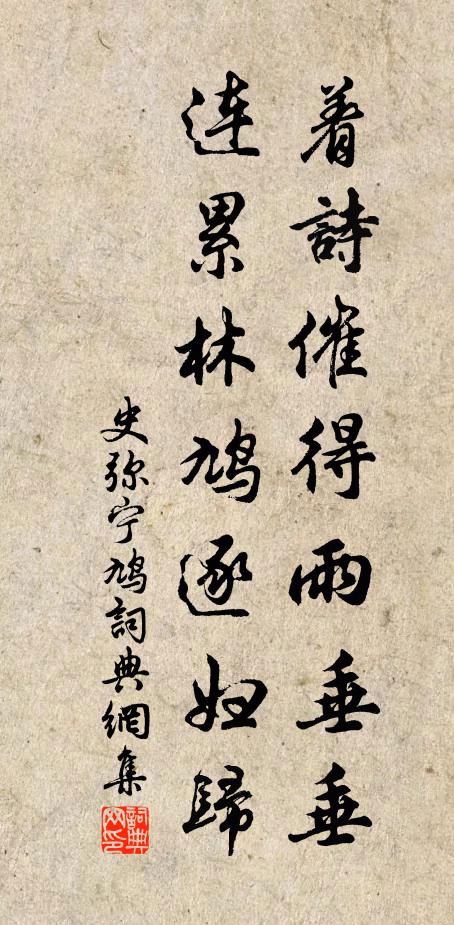 着詩催得雨垂垂
連累林鳩逐妇歸
史弥宁鳩詞典網集
詞典网印